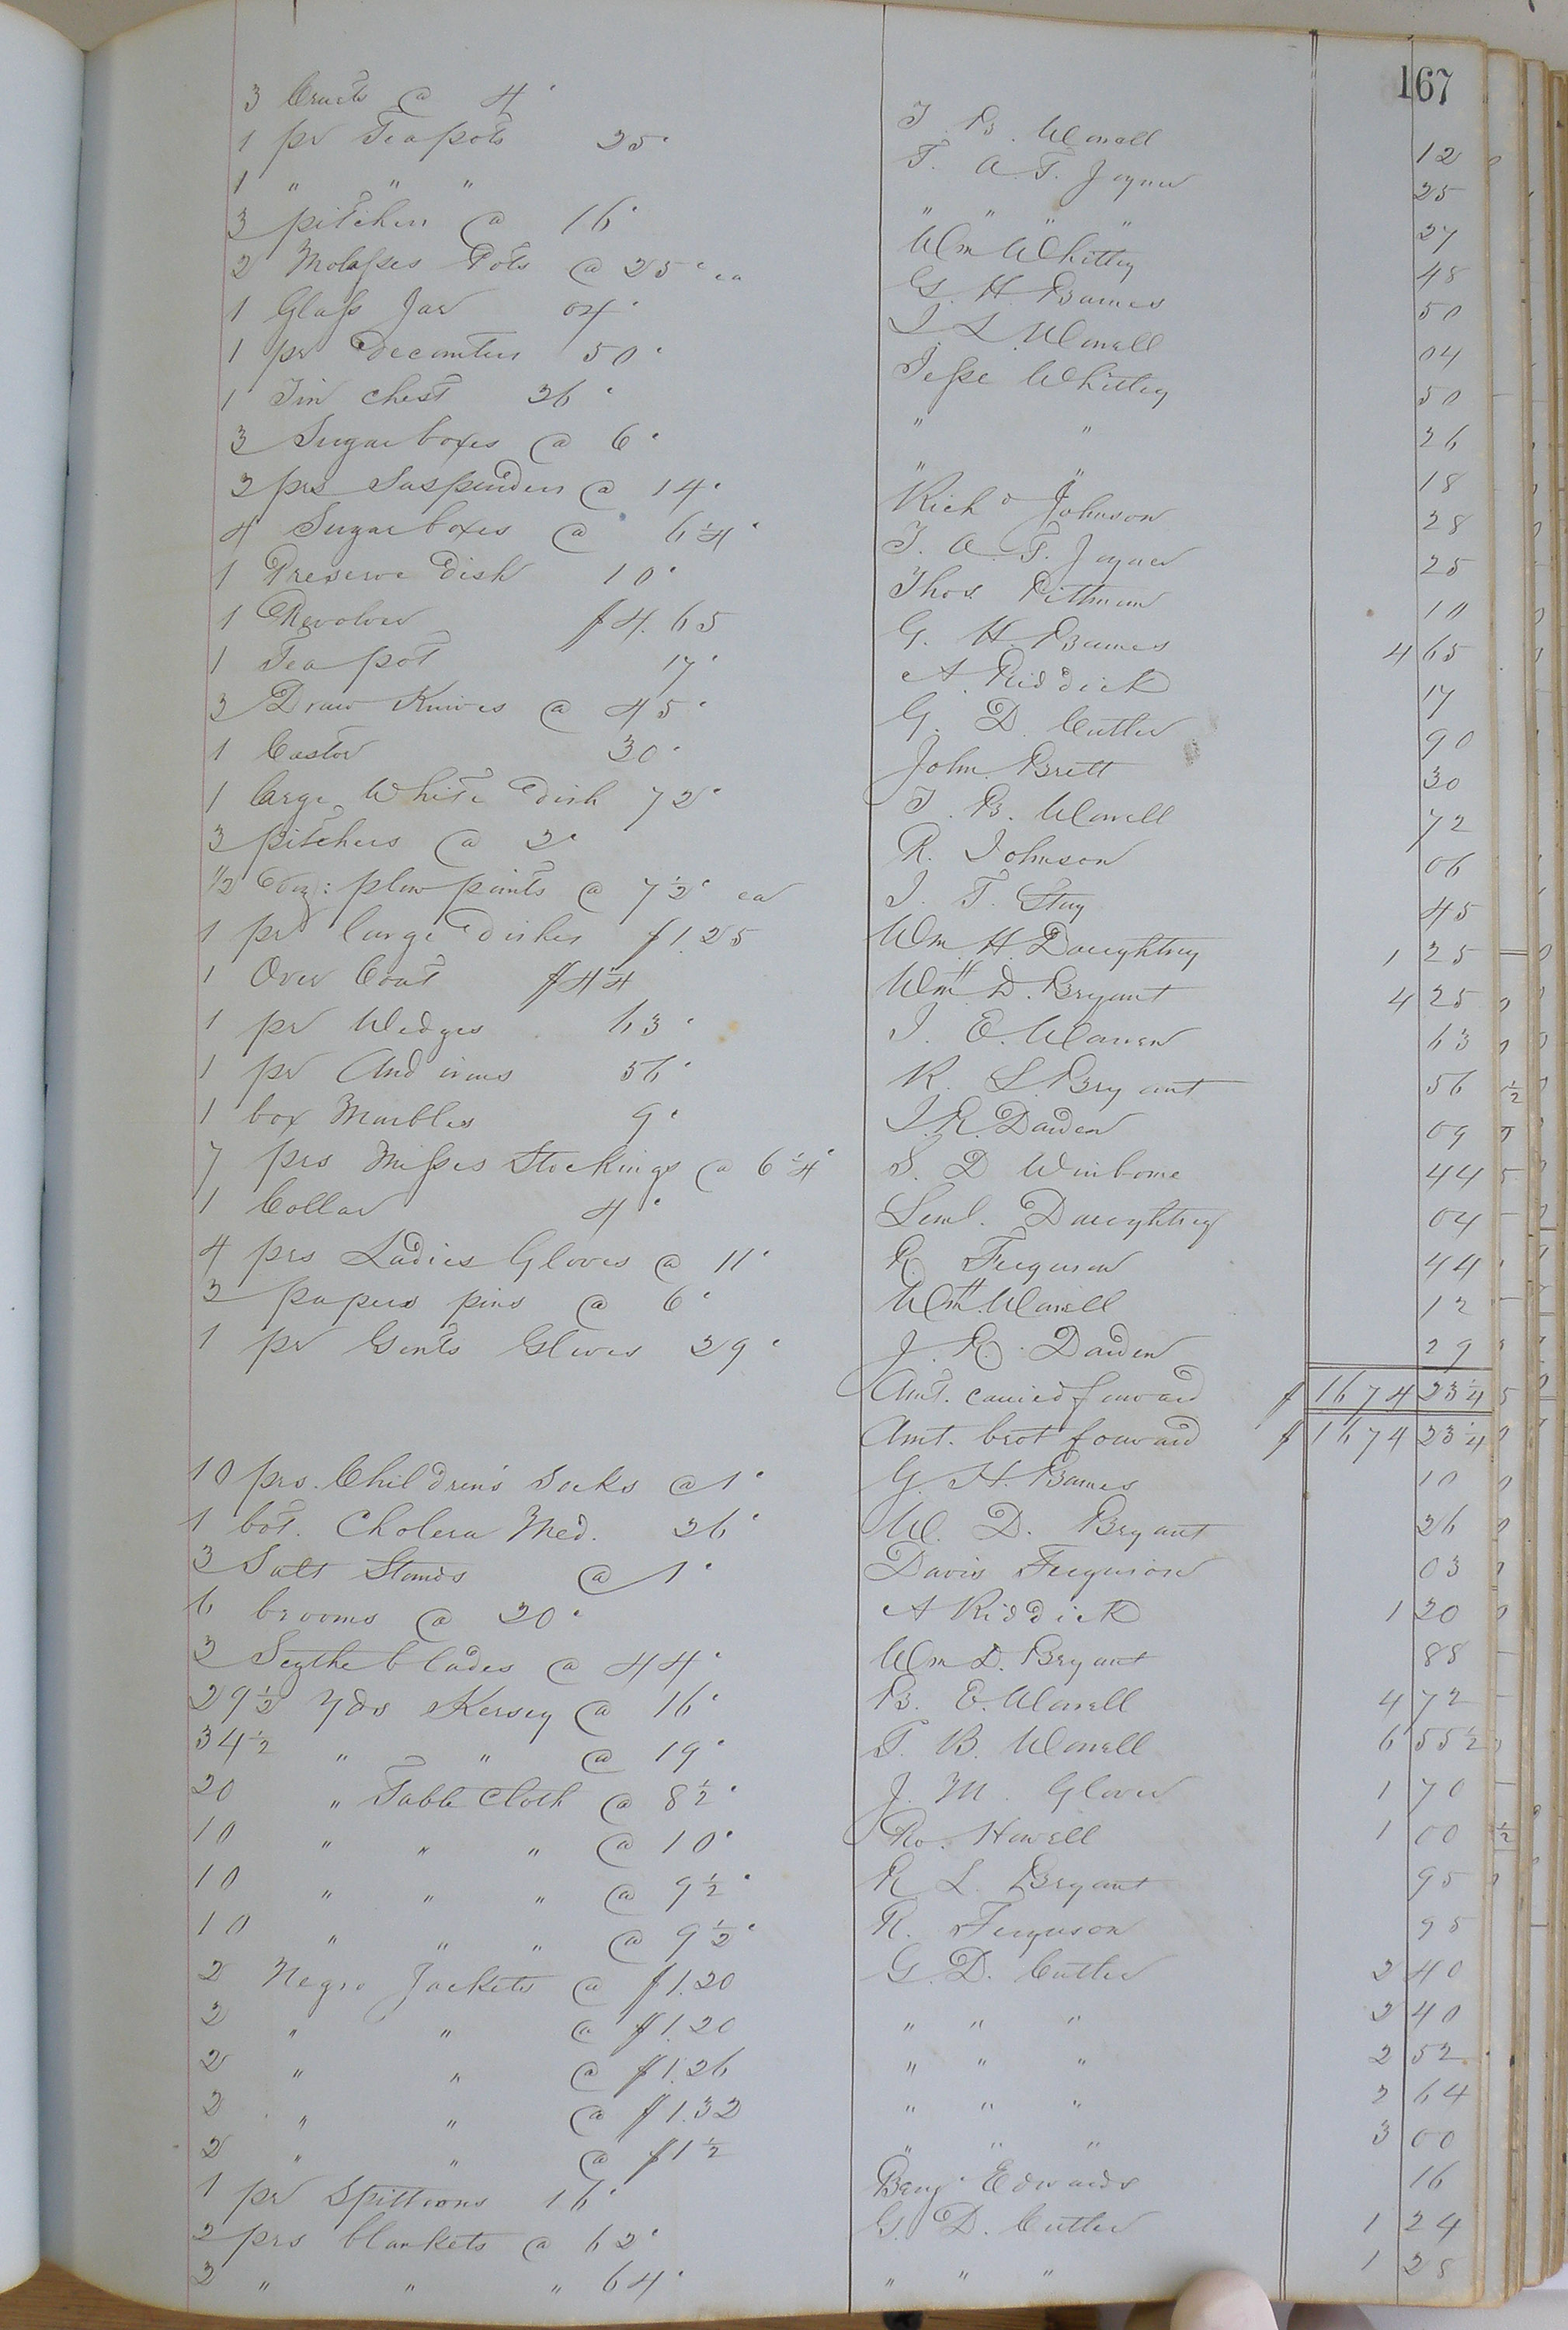 167
3 Cruets @ 4c T. B. Worrell 12
1 pr Tea pots 25c T. A. T. Joyner 25
1 " " " " " " " 27
3 pitchers @ 16c Wm Whitley 48
2 Molasses Pots @ 25c ea G. H. Barnes 50
1 Glass Jar 04c J. L. Worrell 04
1 pr Decanters 50c Jesse Whitley 50
1 Tin chest 26c " " 26
3 Sugar boxes @ 6c " " 18
2 prs Suspenders @ 14c Richd Johnson 28
4 Sugar boxes @ 6 1/4c T. A. T. Joyner 25
1 Preserve Dish 10c Thos Pittman 10
1 Revolver $4.65 G. H. Barnes 4 65
1 Tea pot 17c A. Riddick 17
2 Draw Knives @ 45c G. D. Cutler 90
1 Castor 30c John Brett 30
1 large White Dish 72c T. B. Worrell 72
3 pitchers @ 2c R. Johnson 06
1/2 Doz: plow points @ 7 1/2c ea J. T. 45
1 pr large Dishes $1.25 Wm. H. Daughtrey 1 25
1 Over Coat $4 1/4 Wm D. Bryant 4 25
1 pr Wedges 63c J. E. Warren 63
1 pr And irons 56c R. L. Bryant 56
1 box Marbles 9c J. R. Darden 09
7 prs Misses Stockings @ 6 1/4c S. D. Winborne 44
1 Collar 4c Leml. Daughtrey 04
4 prs Ladies Gloves @ 11c R. Ferguson 44
2 papers pins @ 6c WmH. Worrell 12
1 pr Gents Gloves 29c J. R. Darden 29
Amt. carried forward $ 1674 23 1/4
Amt. brot forward $ 1674 23 1/4
10 prs. Children's Socks @ 1c G. H. Barnes 10
1 bot. Cholera Med. 26c W. D. Bryant 26
3 Salt Stands @ 1c Davis Ferguson 03
6 brooms @ 20c A Riddick 1 20
2 Scythe blades @ 44c Wm D. Bryant 88
29 1/2 yds Kersey @ 16c B. E. Worrell 4 72
34 1/2 " " @ 19c T. B. Worrell 6 55 1/2
20 " Table Cloth @ 8 1/2c J. M. Glover 1 70
10 " " " @ 10c Ro. Howell 1 00
10 " " " @ 9 1/2c R L. Bryant 95
10 " " " @ 9 1/2c R. Ferguson 95
2 Negro Jackets @ $1.20 G. D. Cutler 2 40
2 " " @ $1.20 " " " 2 40
2 " " @ $1.26 " " " 2 52
2 " " @ $1.32 " " " 2 64
2 " " @ $1 1/2 " " " 3 00
1 pr Spittoons 16c Benj. Edwards 16
2 prs blankets @ 62c G. D. Cutler 1 24
2 " " " 64c " " " 1 28